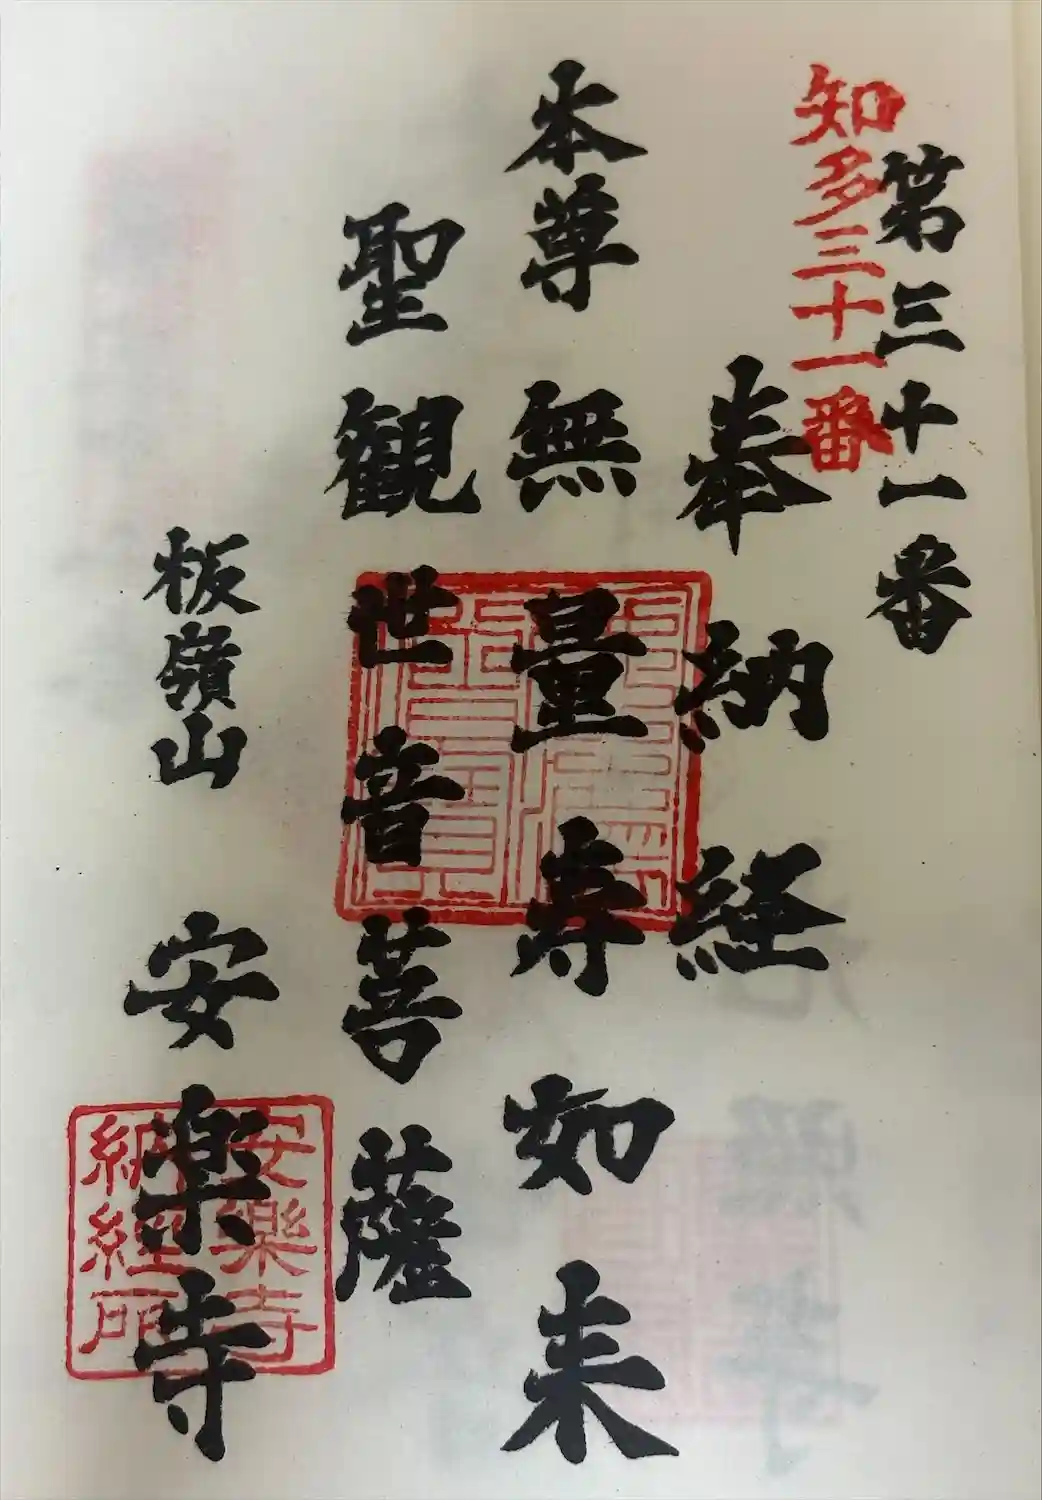 第三十一番
知多三十一番
奉納経
本尊無量寿如来
聖観世音菩薩
板嶺山 安楽寺
安樂寺
納經所